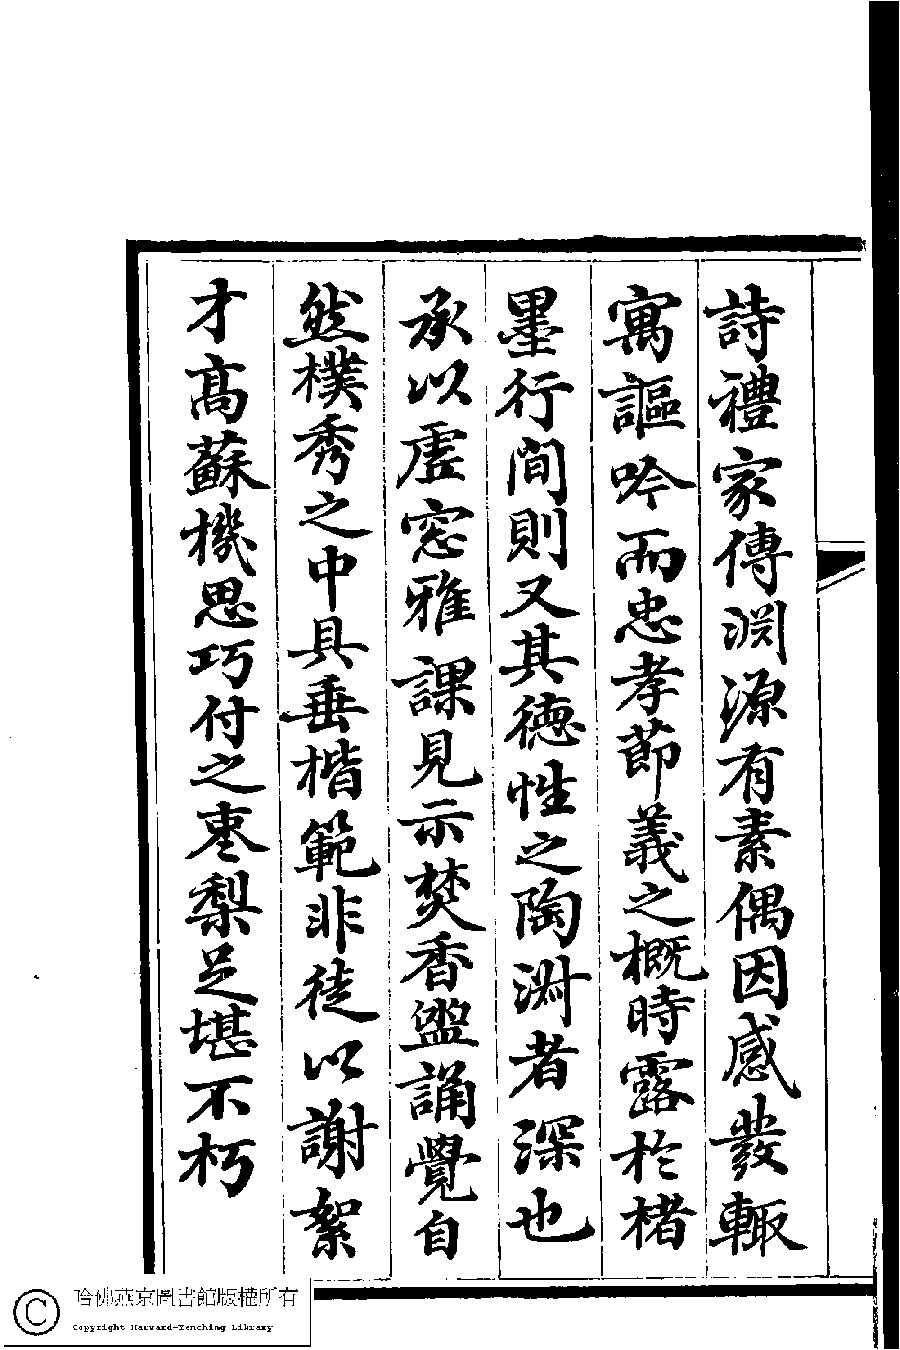 詩禮家傳淵源有素偶因感發輙
寓謳吟而忠孝節義之概時露於楮
墨行間則又其德性之陶淑者深也
承以虛窓雅課見示焚香盥誦覺自
然樸秀之中具垂楷範非徒以謝絮
才高蘇機思巧付之枣梨足堪不朽
哈佛燕京圖書館版權所有
Copyright Harvard-Yenching Library